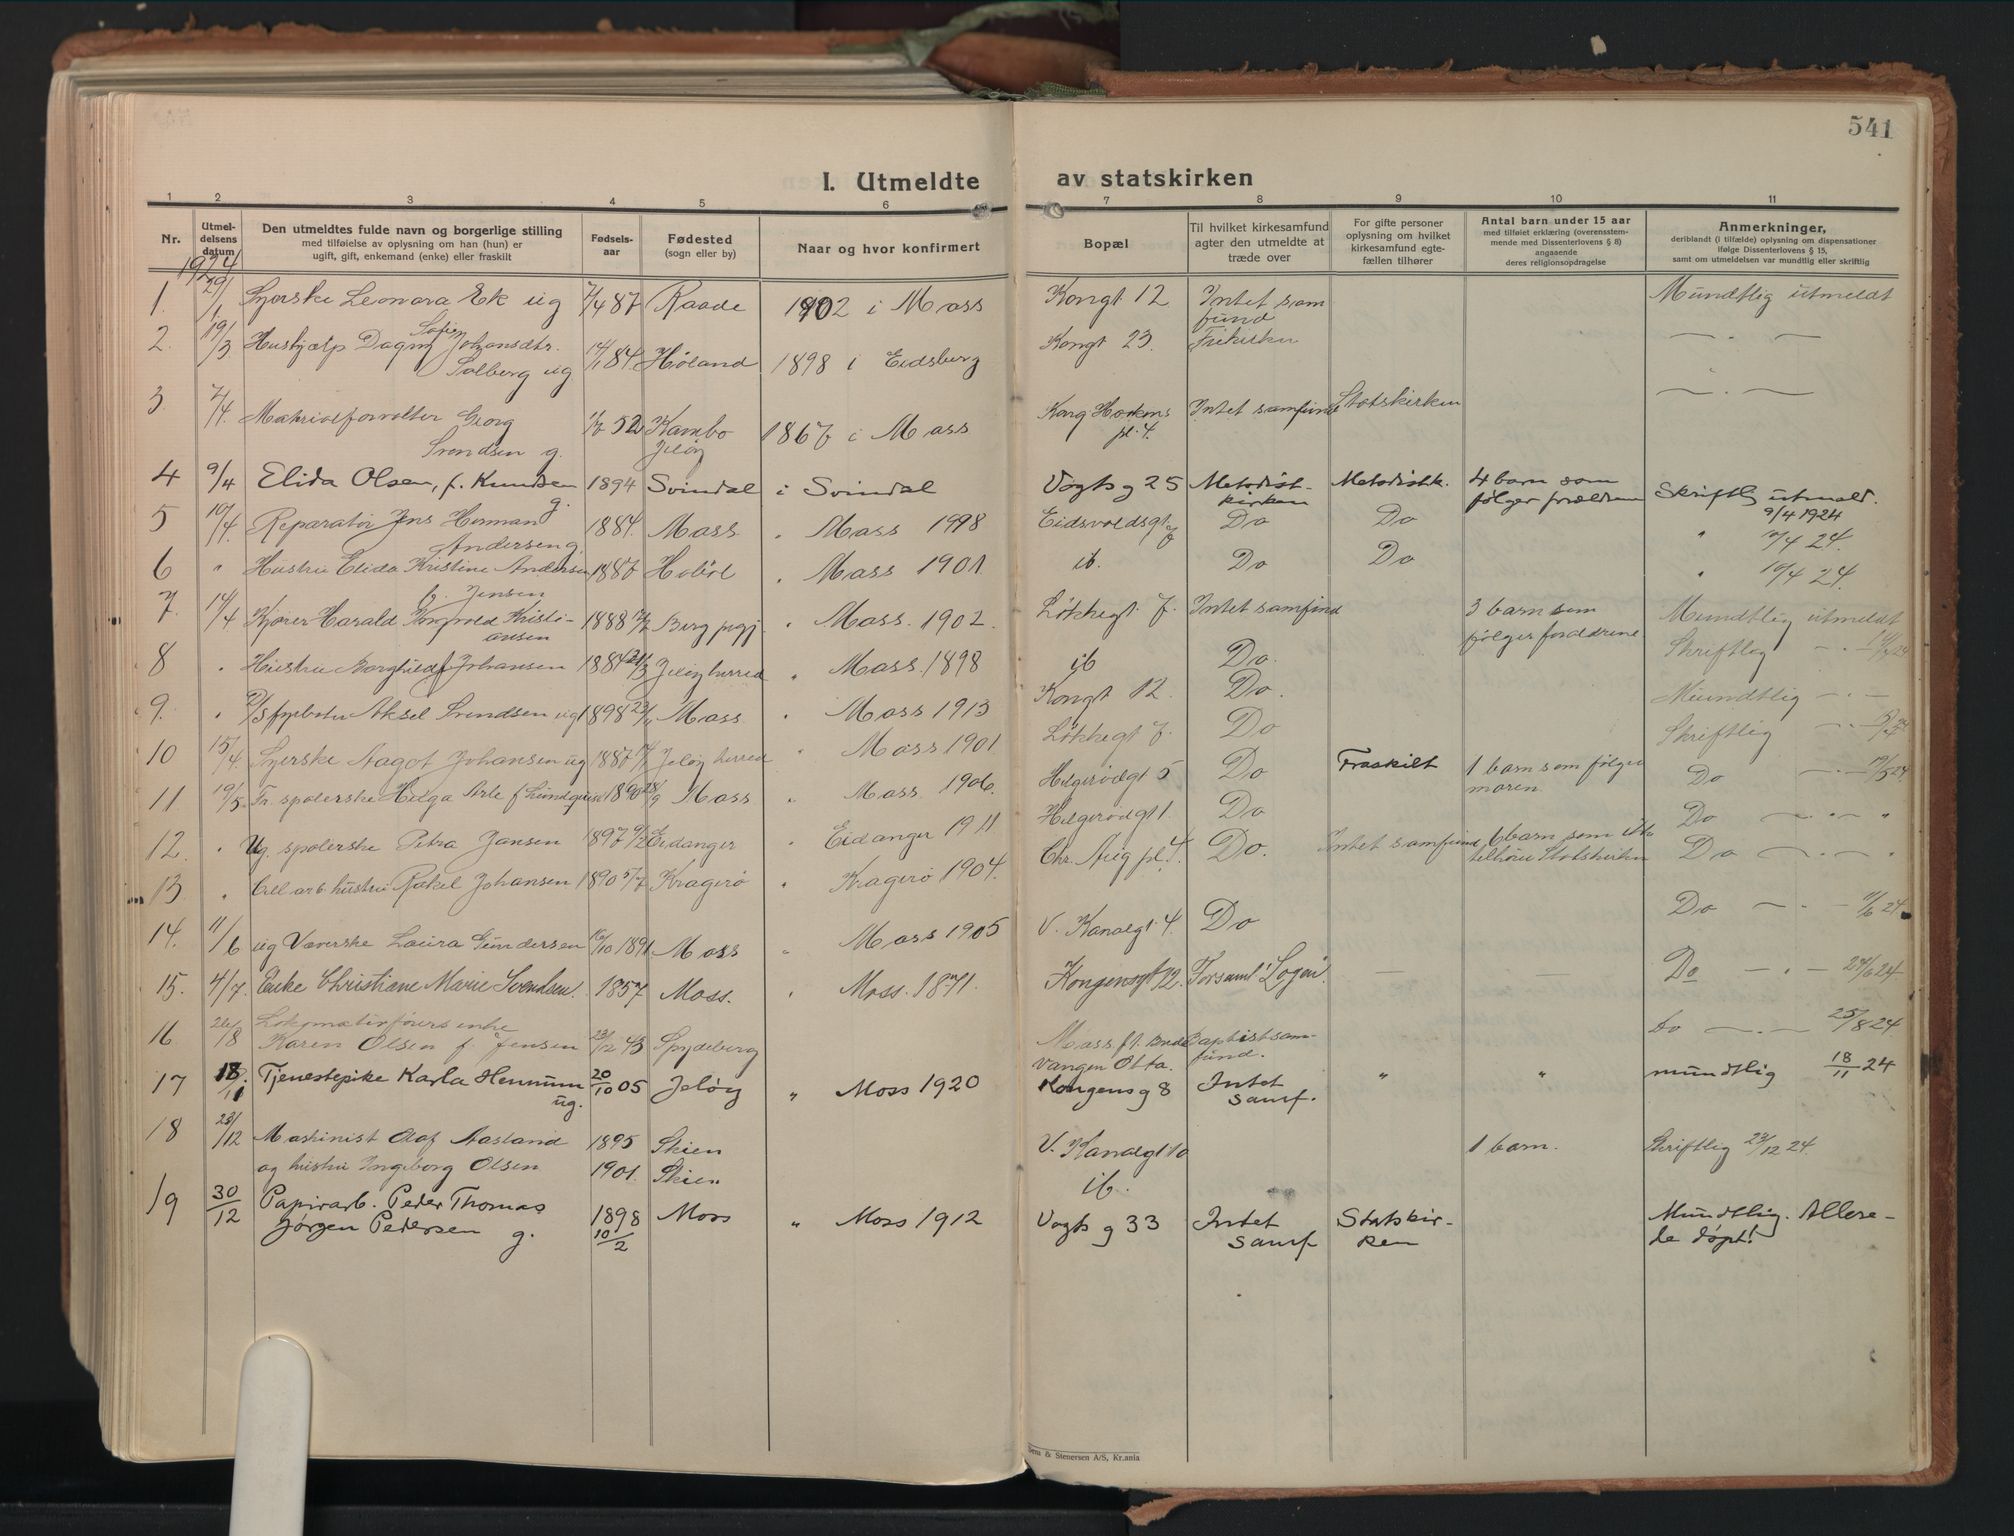 541
I. Utmeldte av statskirken
1 2 3 4 5 6 7 8 9 10 11
Nr.
Utmel-
delsens
datum
Den utmeldtes fulde navn og borgerlige stilling
med tilføielse av oplysning om han (hun) er
ugift, gift, enkemand (enke) eller fraskilt
Fødsels-
aar
Fødested
(sogn eller by)
Naar og hvor konfirmert
Bopæl
Til hvilket kirkesamfund
agter den utmeldte at
træde over
For gifte personer
oplysning om hvilket
kirkesamfund egte-
fællen tilhører
Antal barn under 15 aar
med tilføiet erklæring (overensstem-
mende med Dissenterlovens § 8)
angaaende
deres religionsopdragelse
Anmerkninger,
deriblandt (i tilfælde) oplysning om dispensationer
ifølge Dissenterlovens § 15,
samt om utmeldelsen var mundtlig eller skriftlig
1924
1. 29/1 Syerske Leonora Ek ug 7/4 87 Raade 1902 i Moss Kongt 12 Intet sam
fund Mundtlig utmeldt
2. 19/3 Hushjælp Dagny Sofie Johansdtr.
Solberg ug 14/1 84. Høland 1898 i Eidsberg Kongt 23. Frikirken — " —
3. 7/4. Matrialforvalter Georg
Svendsen g. 52 Kambo
Jeløy 1867 i Moss Kong Haakons
pl. 4. Intet samfund Statskirken — " —
4 9/4 Elida Olsen, f. Knudsen
g. 1894 Svindal i Svindal Vogts g 25 Metodist-
kirken Metodistk. 4 barn som
følger forældrene Skriftlig utmeld.
9/4 1924
5 10/4. Reparatør Jens Herman
Andersen g. 1884. Moss " Moss 1898 Eidsvoldsgt 7 Do Do " 10/4 24.
6 " Hustru Elida Kristine Andersen
f. Jensen 1887 Hobøl " Moss 1901 ib. Do Do " 10/4 24.
7. 14/4 Kjører Harald Ingvold Kristi-
ansen 1888 Berg prgj. " Moss. 1902. Løkkegt 7. Intet samfund 3 barn som
følger foreldrene Mundtlig utmeldt
8 " Hustru Borghild f Johansen 1884 21/3 Jeløy herred " Moss. 1898 ib Do. Skriftlig — " — 14/4 24
9. " Fyrbøter Aksel Svendsen ug 1898 23/11 Moss " Moss 1913 Kongt 12. Do. Mundtlig — " —
10 15/4. Syerske Aagot Johansen ug 1887 Jeløy herred " Moss 1901. Løkkegt 7. Do Skriftlig — " —
11. 19/5. Fr. spolerske Helga Arle f Lundquist 1890 28/9 Moss " Moss. 1906. Helgerødgt 5 Do Fraskilt 1 barn som følger
moren. Do — " — 19/5 24.
12. " Ug. spolerske Petra Jansen 1897 Eidanger " Eidanger 1911 Helgerødgt 1. Do Do — " — "
13 " Cell arb. hustru Rakel Johansen 1890 5/7 Kragerø " Kragerø 1904. Chr. Aug pl. 4. Do. Intet samfund 6 barn som ikke
tilhører Statskirken Do — " — "
14. 11/6 ug Væverske Laura Gundersen 16/10 1891 Moss " Moss 1905 V. Kanalgt. 4. Do Do — " — 11/6 24.
15. 4/7. Enke Christiane Marie Svendsen. 1857 Moss. " Moss. 1871. Kongensgt 12. Forsaml "Logen". — — Do — " —
16 26/8 Lokomotivførers enke
Karen Olsen f. Jensen 23/12 43 Spydeberg Moss f. t. Brede
vangen Otta. Baptistsam-
fund. Do — " — 25/8 24
17 18/11. Tjenestepike Karla Hennum
ug. 20/10 05 Jeløy " Moss 1920 Kongens g 8 Intet
samf. " " mundtlig 18/11 24
18 23/12 Maskinist Olaf Aasland 1895 Skien V. Kanalgt 10 1 barn. Skriftlig 23/12 24.
og hustru Ingeborg Olsen 1901. Skien ib.
19 30/12 Papirarb. Peder Thomas
Jørgen Pedersen g. 1898
10/2 Moss " Moss 1912 Vogts g 33 Intet
samf Statskir-
ken Mundtlig. Allere-
de døpt!
& Stenersen A/S, Kr.ania